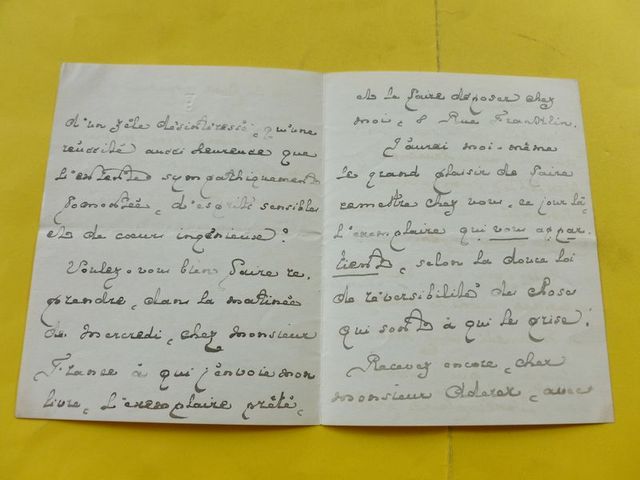 d'un zèle désintéressé, qu'une
réussite aussi heureuse que
l'entente sympathiquement
fomentée, d'esprits sensibles
et de cœurs ingénieux!
Voulez-vous bien faire re-
prendre, dans la matinée
de mercredi, chez monsieur
France à qui j'envoie mon
livre, l'exemplaire prêté,
et le faire déposer chez
moi, 8 Rue Franklin.
J'aurai moi-même
le grand plaisir de faire
remettre chez vous, ce jour là,
l'exemplaire qui vous appar-
tient, selon la douce loi
de réversibilité des choses
qui sont à qui les prise!
Recevez encore, cher
monsieur Aderer, avec